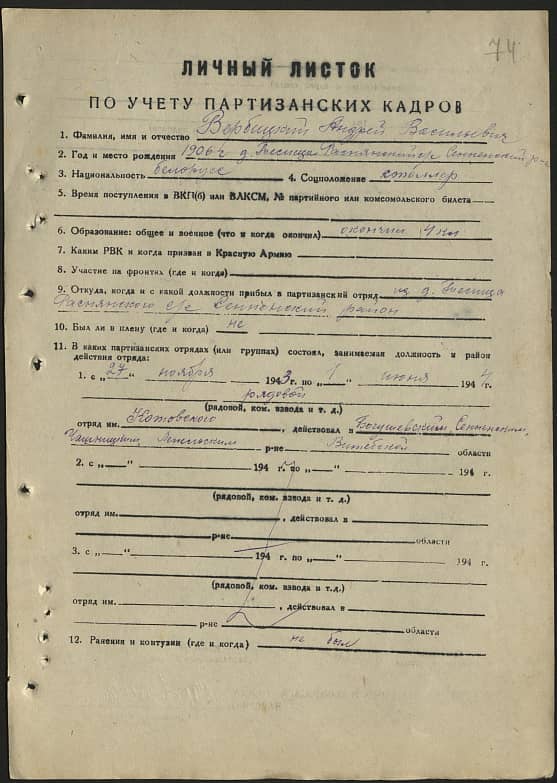 74
ЛИЧНЫЙ ЛИСТОК
ПО УЧЕТУ ПАРТИЗАНСКИХ КАДРОВ
1. Фамилия, имя и отчество Вербицкий Андрей Васильевич
2. Год и место рождения 1906 г д. Сенненский р-н
3. Национальность белорус 4. Соцположение столяр
5. Время поступления в ВКП(б) или ВЛКСМ, № партийного или комсомольского билета
6. Образование: общее и военное (что и когда окончил) окончил 4 кл
7. Каким РВК и когда призван в Красную Армию
8. Участие на фронтах (где и когда)
9. Откуда, когда и с какой должности прибыл в партизанский отряд из д.
с/с Сенненский район
10. Был ли в плену (где и когда) не
11. В каких партизанских отрядах (или группах) состоял, занимаемая должность и район
действия отряда:
1. с „27“ ноября 1943 г. по „1 июня 1944 г.
рядовой
(рядовой, ком. взвода и т. д.)
отряд им. Котовского, действовал в Богушевским, Сенненским,
Чашницким Лепельским р-не Витебской области
2. с „ “ 194 г. по „ “ 194 г.
(рядовой, ком. взвода и т. д.)
отряд им. , действовал в
р-не области
3. с „ “ 194 г. по „ “ 194 г.
(рядовой, ком. взвода и т.д.)
отряд им. , действовал в
р-не области
12. Ранения и контузии (где и когда) не был